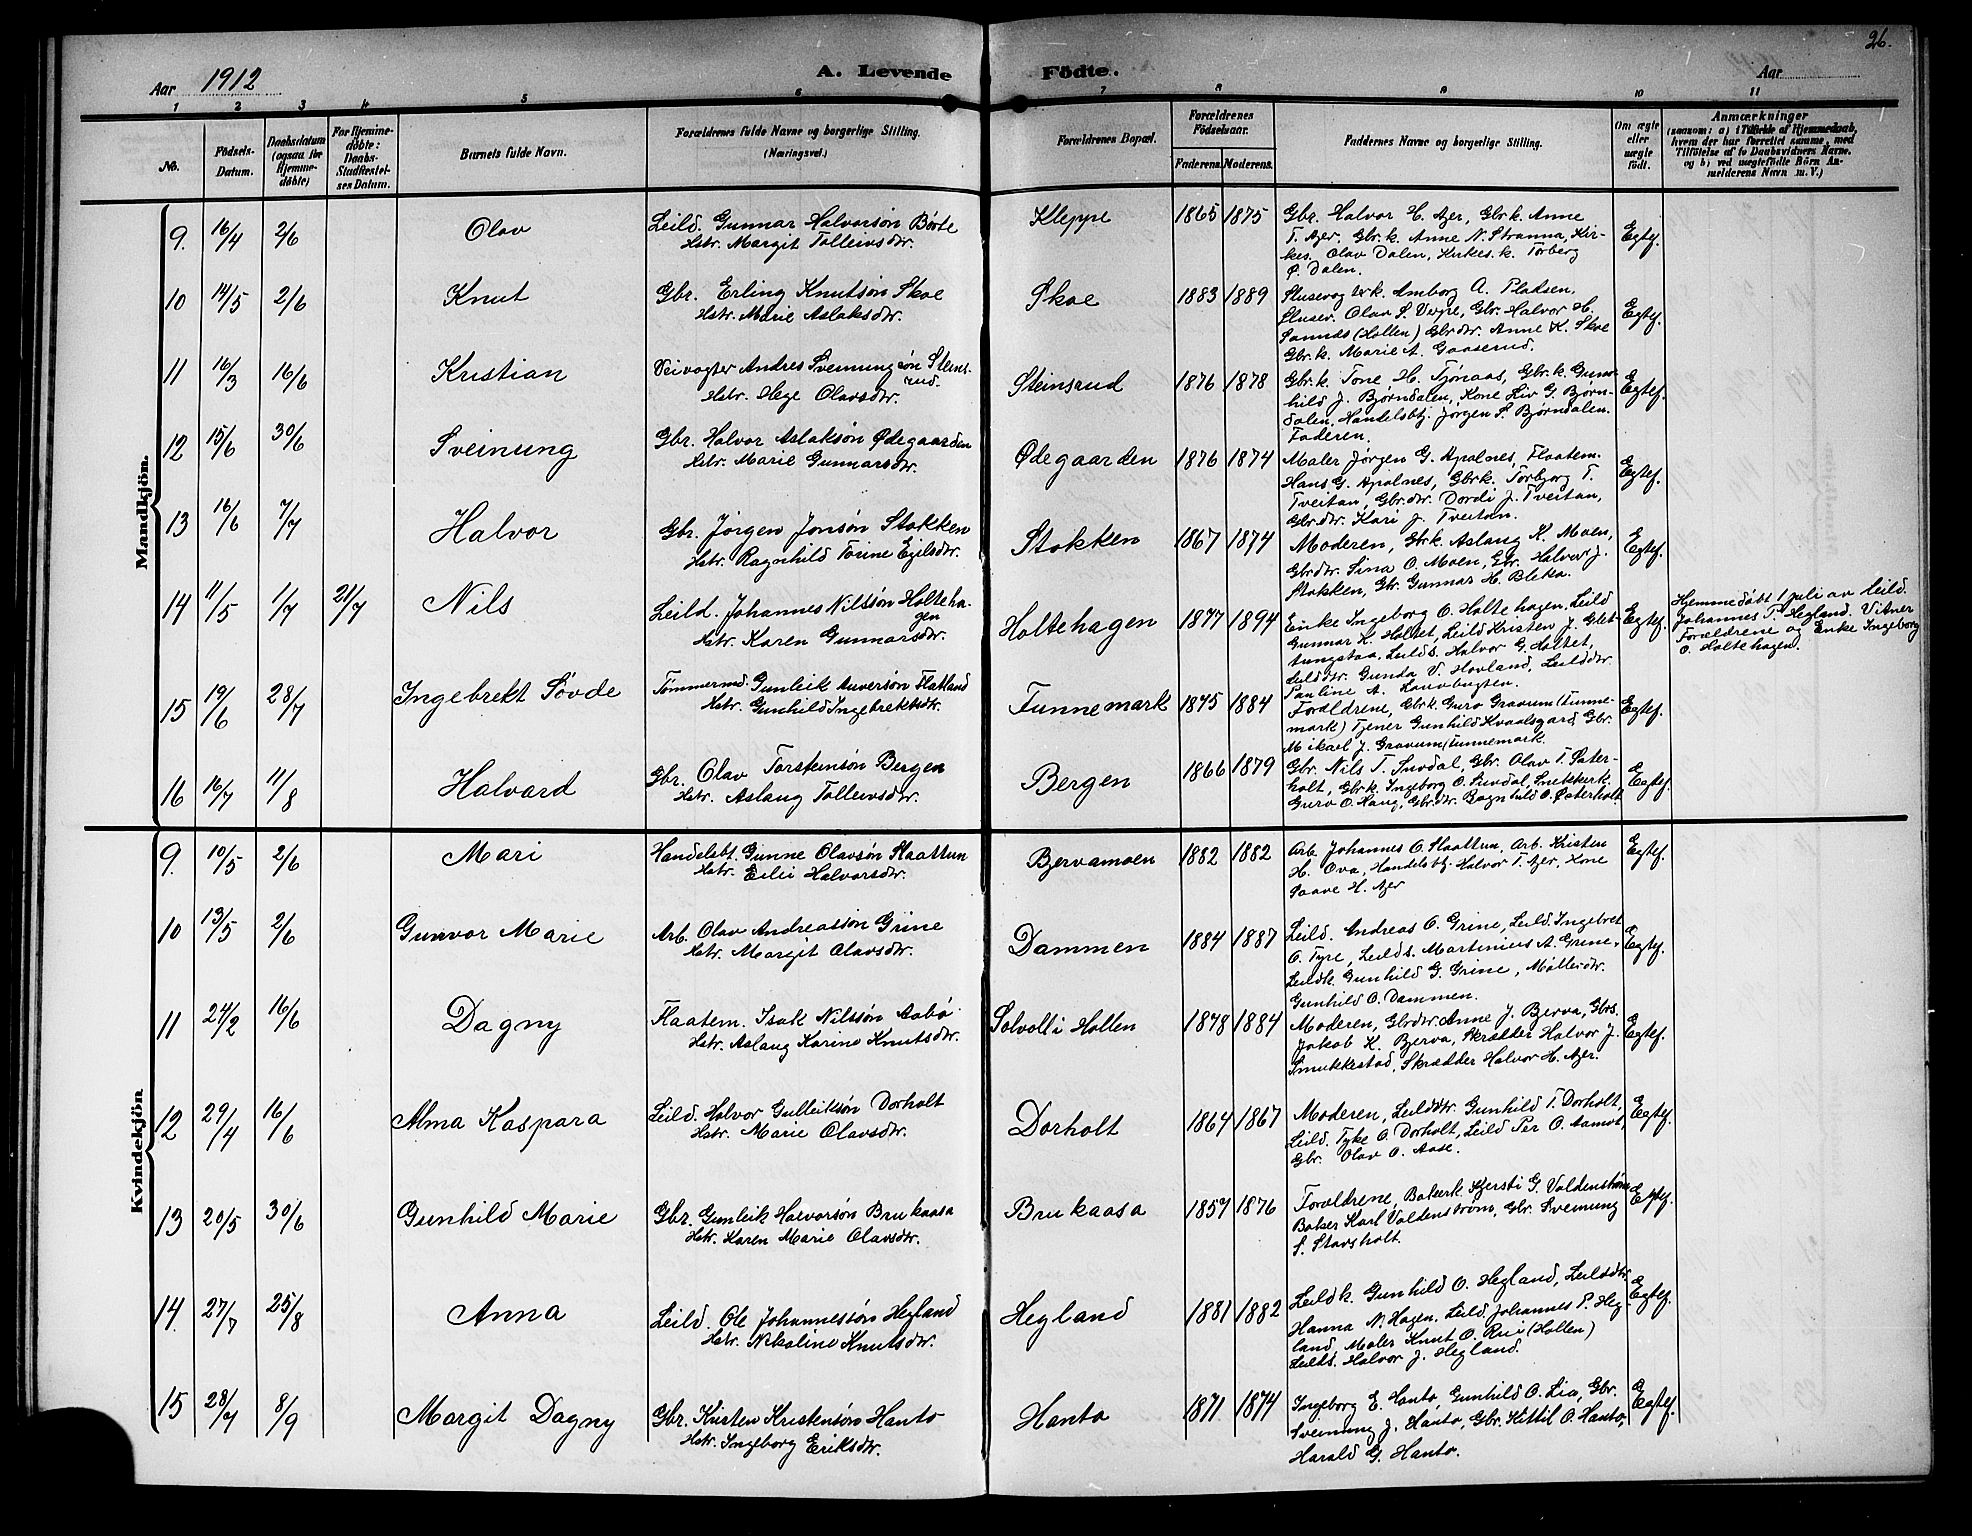 26.
Aar 1912
A. Levende Födte.
Aar
1 2 3 4 5 6 7 8 9 10 11
No.
Födsels-Datum.
Daabsdatum (ogsaa for Hjemme-döbte)
For Hjemme-döbte: Daabs-Stadfæstel-ses Datum.
Barnets fulde Navn.
Forældrenes fulde Navne og borgerlige Stilling.
(Næringsvei.)
Forældrenes Bopæl.
Forældrenes Födselsaar.
Faderens. Moderens.
Faddernes Navne og borgerlige Stilling.
Om ægte eller uægte födt.
Anmærkninger
(saasom: a) i Tilfælde af Hjemmedaab,
hvem der har forrettet samme, med
Tilföielse af to Daabsvidners Navne.
og b) ved uægtefödte Börn An-
melderens Navn m. V.)
Mandkjön.
9. 16/4 2/6 Olav
Leild. Gunnar Halvorsön Börte
Hstr. Margit Tollevsdtr.
Kleppe 1865 1875
Gbr. Halvor H. Ajer, Gbrk. Anne
T. Ajer, Gbr.k. Anne N. Stranna, Kir-
kes. Olav Dalen, Kirkes.k. Torberg
Ö. Dalen.
Egtef.
10 14/5 2/6 Knut
Gbr. Erling Knutsön Skoe
Hstr. Marie Aslaksdtr.
Skoe 1883 1889
Slusevogterk. Amborg A. Pladsen,
Slusev. Olav S. Verpe, Gbr. Halvor H.
(Hollen) Gbrdtr. Anne K. Skoe
Gbr.k. Marie A. Gaaserud.
Egtef.
11 16/3 16/6 Kristian
Veivogter Andres Sveinungsön Stens-
rud.
Hstr. Hege Olavsdtr.
Steinsrud 1876 1878
Gbr.k. Tone H. Tjönaas, Gbr.k. Gun-
hild J. Björndalen, Kone Liv G. Björn-
dalen, Handelsbtj. Jörgen S. Björndalen.
Faderen.
Egtef.
12 15/6 30/6 Sveinung
Gbr. Halvor Aslaksön Ödegaarden
Hstr. Marie Gunnarsdtr.
Ödegaarden 1876 1874
Maler Jörgen G. Apalnes, Flaatem.
Hans G. Apalnes, Gbrk. Torbjorg T.
Tveitan, Gbr.dtr. Dordi J. Tveitan,
Gbr.dtr. Kari J. Tveitan.
Egtef.
13 16/6 7/7 Halvor
Gbr. Jörgen Jonsön Stokken
Hstr. Ragnhild Torine Egilsdtr.
Stokken 1867 1874
Moderen, Gbrk. Aslaug K. Moen,
Gbrdtr. Sina O. Moen, Gbr. Halvor J.
Stokken, Gbr. Gunnar H. Bleka.
Egtef.
14 11/5 1/7 21/7 Nils
Leild. Johannes Nilssön Holteha-
gen
Hstr. Karen Gunnarsdtr.
Holtehagen 1877 1894
Enke Ingeborg O. Holtehagen, Leild
Gunnar K. Holtet, Leild Kristen J. Glet-
tungstaa, Leilds. Halvor G. Holtet,
Leilddtr. Gunda V. Hovland, Leilddtr.
Pauline A. Lauvbugten.
Egtef.
Hjemmedöbt 1 juli av leild.
Johannes P. Hegland. Vitner
Forældrene og Enke Ingeborg
O. Holtehagen.
15 19/6 28/7 Ingebrekt Sövde
Tömmermd. Gunleik Auversön Flatland
Hstr. Gunhild Ingebrektsdtr.
Tunnemark 1875 1884
Forældrene, Gbrk. Guro Gravum (Tunne-
mark) Tjener Gunhild Kvaalsgard, Gbr.
Mikael J. Gravum (Tunnemark.
Egtef.
16 16/7 11/8 Halvard
Gbr. Olav Torsteinsön Bergen
Hstr. Aslaug Tollevsdtr.
Bergen 1866 1879
Gbr. Nils T. Suvdal, Gbr. Olav T. Sater-
holt, Gbr.k. Ingeborg O. Suvdal, Snekkerk.
Guro O. Haug, Gbr.dtr. Ragnhild O. Österholt
Egtef.
Kvindekjön
9. 10/5 2/6 Mari
Handelsbt. Gunne Olavsön Slaattun
Hstr. Eilei Halvorsdtr.
Bjervamoen 1882 1882
Arb. Johannes O. Slaattun, Arb. Kristen
H. Ova, Handelsbtj. Halvor T. Ajer, Kone
Saave H. Ajer
Egtef.
10 13/5 2/6 Gunvor Marie
Arb. Olav Andreassön Grine
Hstr. Margit Olavsdtr.
Dammen 1884 1887
Leild. Andreas O. Grine, Leild. Ingebret
O. Tyre, Leilds. Martinius A. Grine,
Leildk. Gunhild G. Grine, Möllerdtr.
Gunhild O. Dammen.
Egtef.
11 24/2 16/6 Dagny
Flaatem. Isak Nilssön Aabö
Hstr. Aslaug Karine Knutsdtr.
Solvoll i Hollen 1878 1884
Moderen, Gbrdtr. Anne J. Bjerva, Gbrs.
Jakob K. Bjerva, Skrædder Halvor J.
Smukkestad, Skrædder Halvor H. Ajer.
Egtef.
12 29/4 16/6 Alma Kaspara
Leild. Halvor Gulleiksön Dorholt
Hstr. Marie Olavsdtr.
Dorholt 1864 1867
Moderen, Leilddtr. Gunhild T. Dorholt,
Leild. Tyke O. Dorholt, Leild Per O. Aamot,
Gbr. Olav O. Aase.
Egtef.
13 20/5 30/6 Gunhild Marie
Gbr. Gunleik Halvorsön Brukaasa
Hstr. Karen Marie Olavsdtr.
Brukaasa 1857 1876
Forældrene, Bakerk. Kjersti G. Valdenström
Baker Karl Valdenström, Gbr. Sveinung
S. Stavsholt.
Egtef.
14. 27/7 25/8 Anna
Leild. Ole Johannessön Hegland
Hstr. Nikoline Knutsdtr.
Hegland 1881 1882
Leildk. Gunhild O. Hegland, Leilddtr.
Hanna N. Hagen, Leild Johannes P. Heg-
land, Maler Knut O. Rui (Hollen)
Leilds. Halvor J. Hegland.
Egtef.
15 28/7 8/9 Margit Dagny
Gbr. Kristen Kristensön Hanto
Hstr. Ingeborg Eriksdtr.
Hanto 1871 1874
Ingeborg E. Hanto, Gunhild O. Lia, Gbr.
Sveinung J. Hanto, Gbr. Kittil O. Hanto,
Harald G. Hanto.
Egtef.